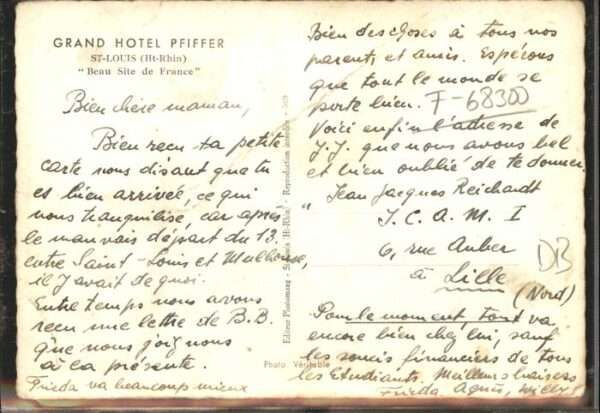 GRAND HOTEL PFIFFER
ST-LOUIS (Ht-Rhin)
"Beau Site de France"
Bien chère maman,
Bien reçu ta petite
carte nous disant que tu
es bien arrivée, ce qui
nous tranquilise, car après
le mauvais départ du 13.
entre Saint-Louis et Mulhouse,
il y avait de quoi.
Entre temps nous avons
reçu une lettre de B.B.
que nous joignons
à la présente.
Frieda va beaucoup mieux
Reproduction interdite
St-Louis (Ht-Rhin)
Photo Véritable
Bien des choses à tous nos
parents et amis. Espérons
que tout le monde se
porte bien.
F-68300
Voici enfin l'adresse de
J.J. que nous avons bel
et bien oublié de te donner.
"Jean Jacques Reichardt
I.C.A.M. I
6, rue Auber
à Lille
(Nord)
DB
Pour le moment, tout va
encore bien chez lui, sauf
les soucis financiers de tous
les Etudiants. Meilleurs baisers
Frieda. Agnès, Willy